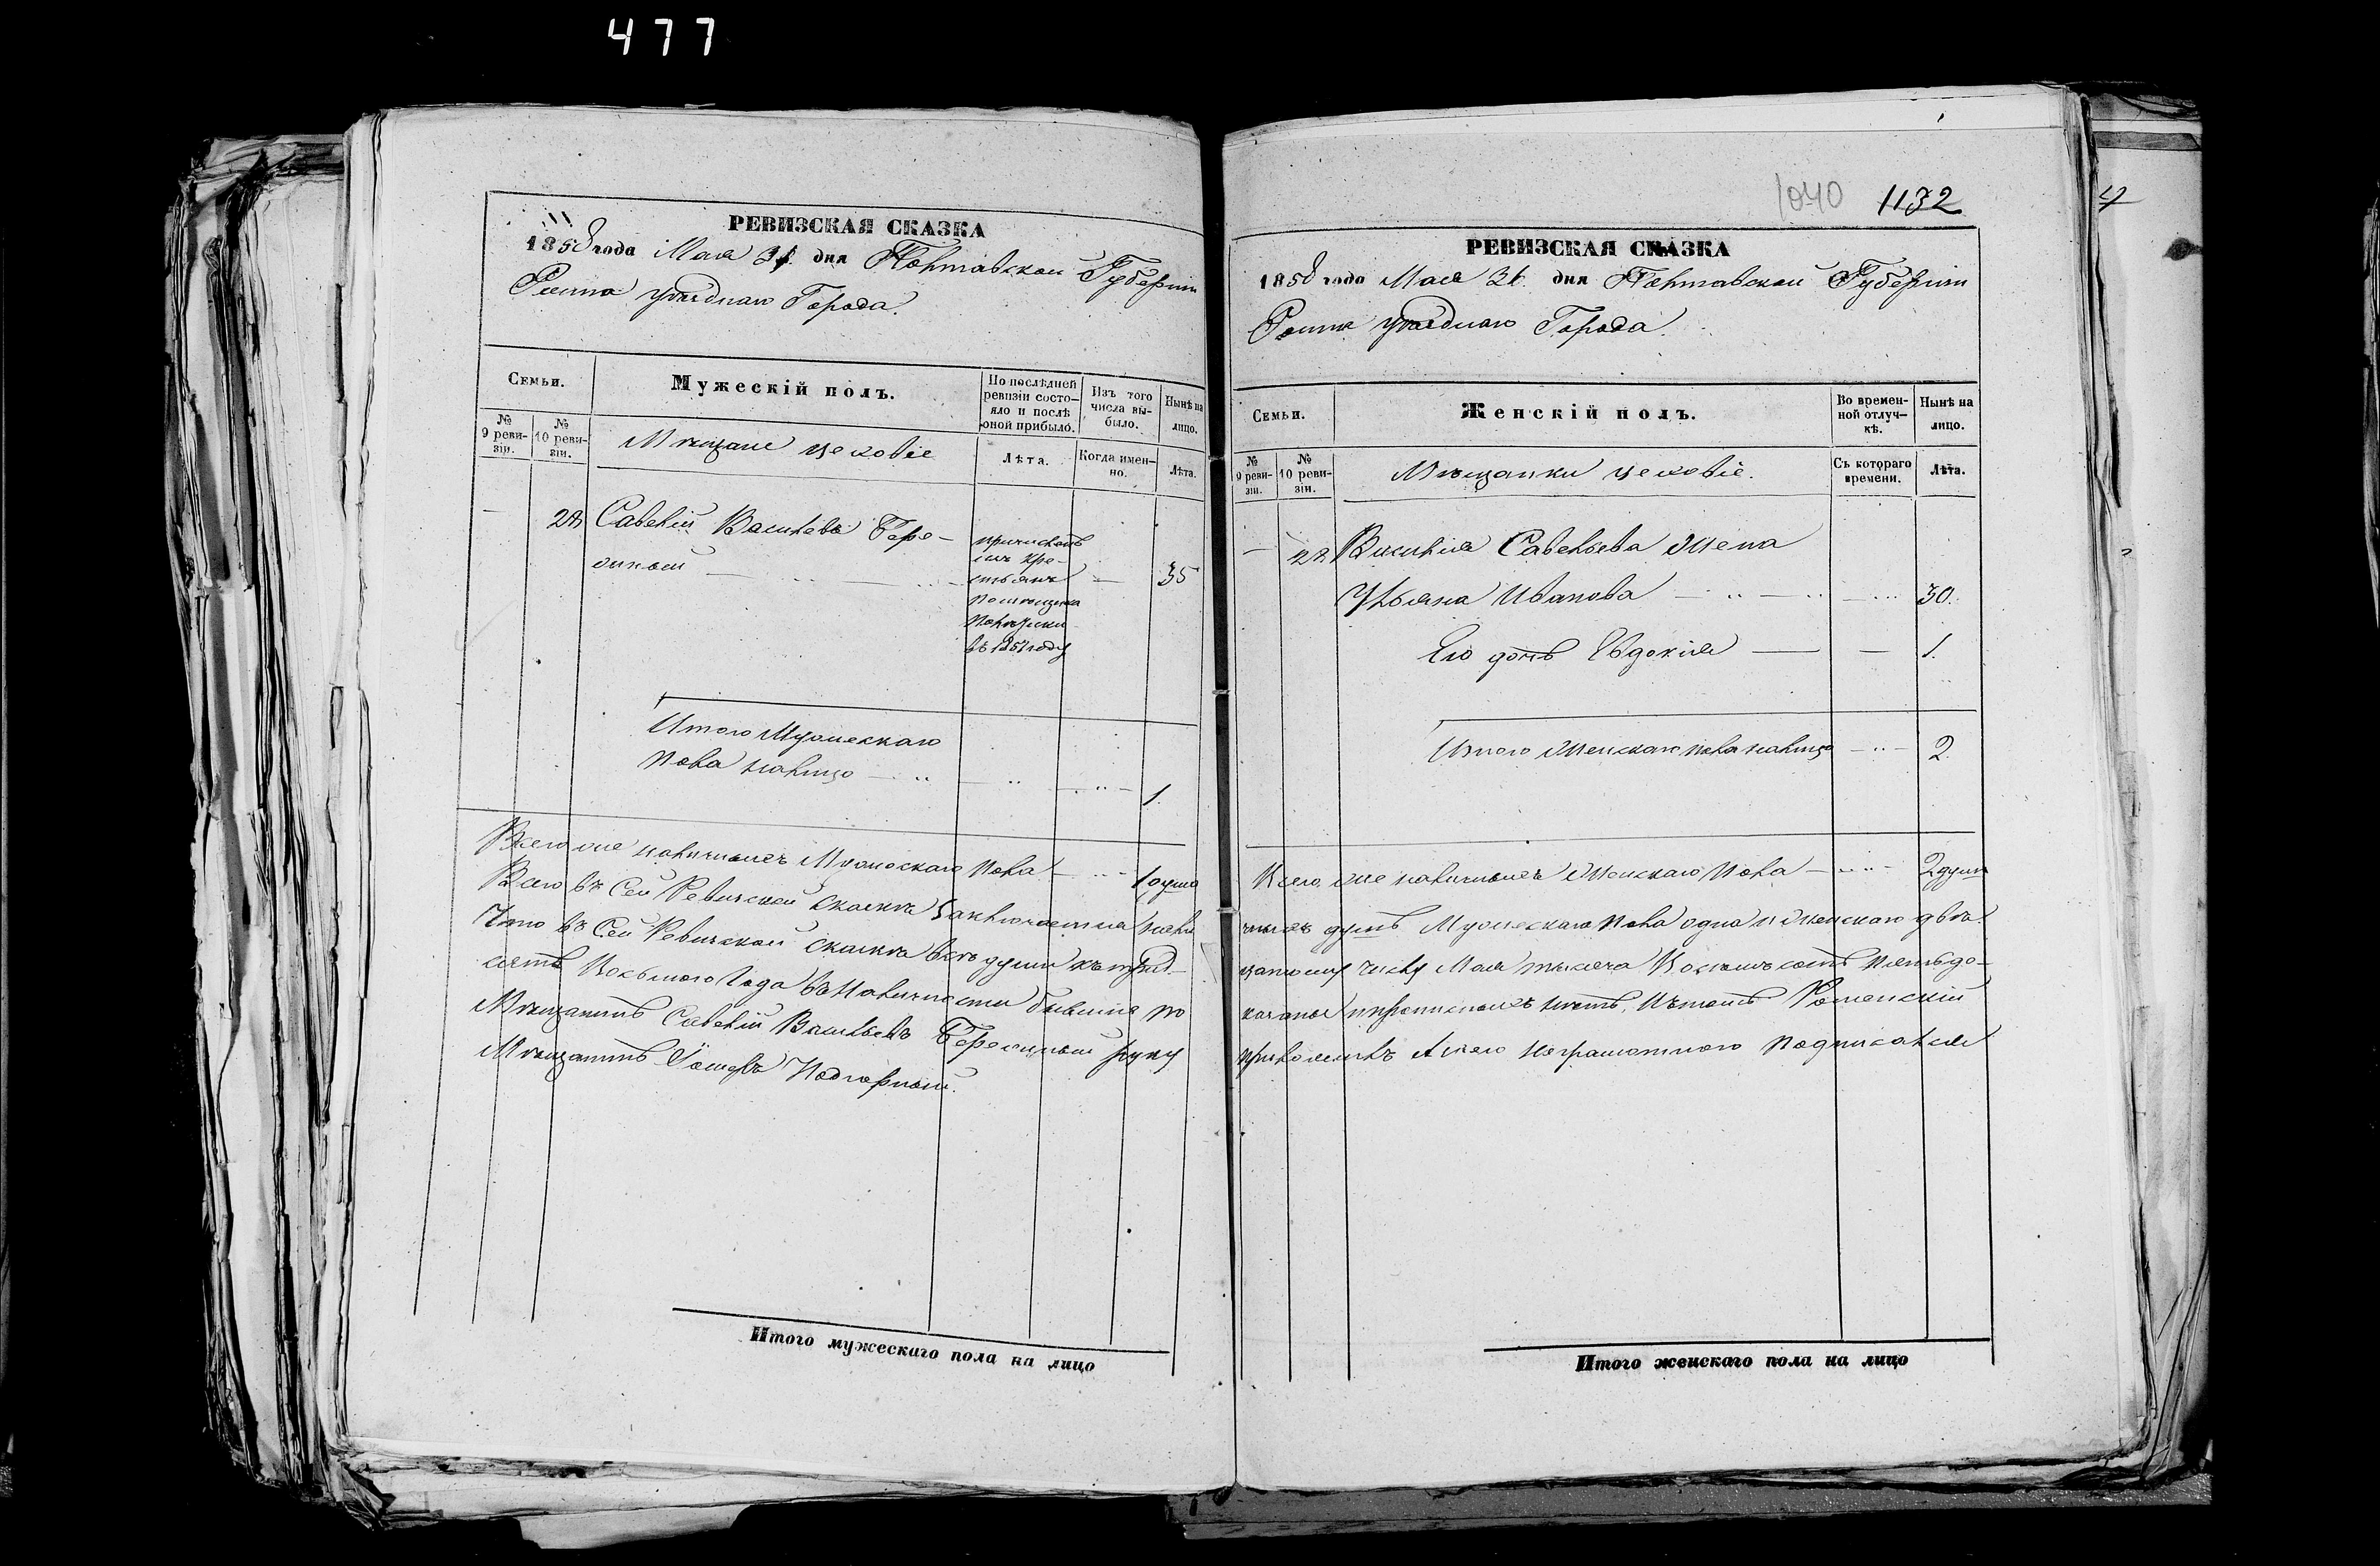 477
РЕВИЗСКАЯ СКАЗКА
1858 года Мая 31 дня Полтавской Губерніи
Ромна уѣзднаго Города.
Семьи.
Мужескій полъ.
По послѣдней ревизіи состояло и послѣ оной прибыло.
Изъ того числа выбыло.
Нынѣ на лицо.
№ 9 ревизіи.
№ 10 ревизіи.
Мѣщане цеховіе
Лѣта.
Когда именно.
Лѣта.
Савелій Васильевъ Бере-
причисленъ
изъ кре-
стьянъ
помѣщика
въ 1857 году
— 35
Итого Мужескаго
пола налицо — 1.
Всего же наличныхъ Мужескаго пола — 1 душа
Всего въ Сей Ревизской Сказкѣ Заключается нали
Что въ Сей Ревизской Сказкѣ всѣ души къ трид-
сятъ Восьмого Года въ Наличности бывшие по
Мѣщанинъ Савелій Васильевъ руку
Мѣщанинъ Подгорный.
Итого мужескаго пола на лицо
1040 1132
РЕВИЗСКАЯ СКАЗКА
1858 года Мая 31 дня Полтавской Губерніи
Ромна уѣзднаго Города.
Семьи.
Женскій полъ.
Во временной отлучкѣ.
Нынѣ на лицо.
№ 9 ревизіи.
№ 10 ревизіи.
Мѣщанки цеховіе.
Съ котораго времени.
Лѣта.
Савельева жена
Ульяна Иванова — 30.
Его дочь Евдокія — 1.
Итого Женскаго пола налицо — 2.
Всего же наличныхъ Женскаго пола — 2 души
чныхъ душъ Мужескаго пола одна и женскаго двѣ.
цатому числу Мая тысяча Восемьсотъ пятьде-
казаны и прописныхъ нѣтъ, въ томъ Роменскій
приложилъ А вмѣсто неграмотного подписался
Итого женскаго пола на лицо